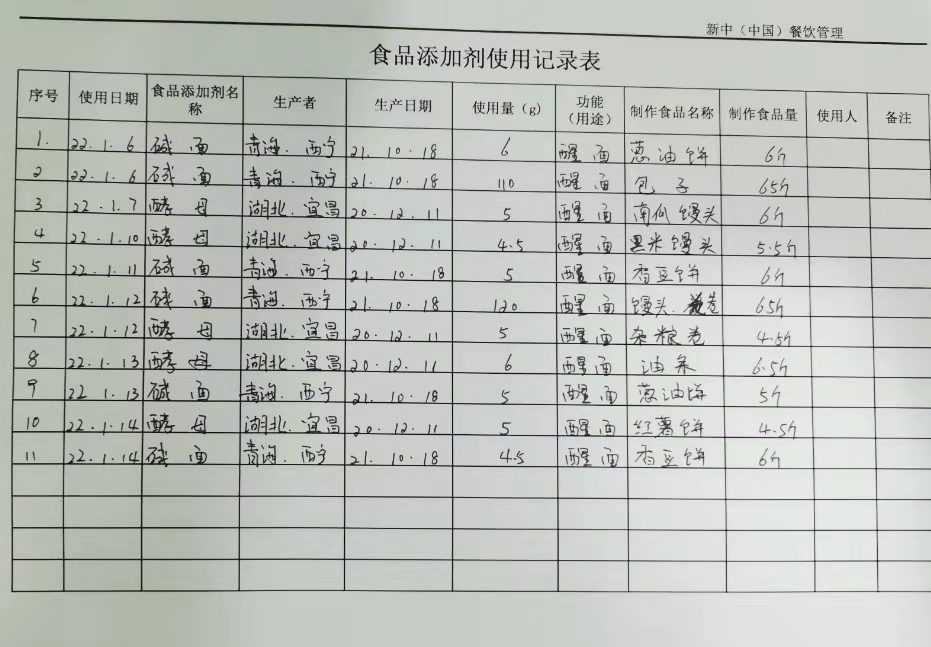 新中（中国）餐饮管理
食品添加剂使用记录表
序号 使用日期 食品添加剂名称 生产者 生产日期 使用量（g） 功能（用途） 制作食品名称 制作食品量 使用人 备注
1. 22.1.6 碱面 青海.西宁 21.10.18 6 醒面 葱油饼 6斤
2 22.1.6 碱面 青海.西宁 21.10.18 110 醒面 包子 65斤
3 22.1.7 酵母 湖北.宜昌 20.12.11 5 醒面 南瓜馒头 6斤
4 22.1.10 酵母 湖北.宜昌 20.12.11 4.5 醒面 黑米馒头 5.5斤
5 22.1.11 碱面 青海.西宁 21.10.18 5 醒面 香豆饼 6斤
6 22.1.12 碱面 青海.西宁 21.10.18 120 醒面 馒头.卷 65斤
7 22.1.12 酵母 湖北.宜昌 20.12.11 5 醒面 杂粮卷 4.5斤
8 22.1.13 酵母 湖北.宜昌 20.12.11 6 醒面 油条 6.5斤
9 22 1.13 碱面 青海.西宁 21.10.18 5 醒面 葱油饼 5斤
10 22.1.14 酵母 湖北.宜昌 20.12.11 5 醒面 红薯饼 4.5斤
11 22.1.14 碱面 青海.西宁 21.10.18 4.5 醒面 香豆饼 6斤